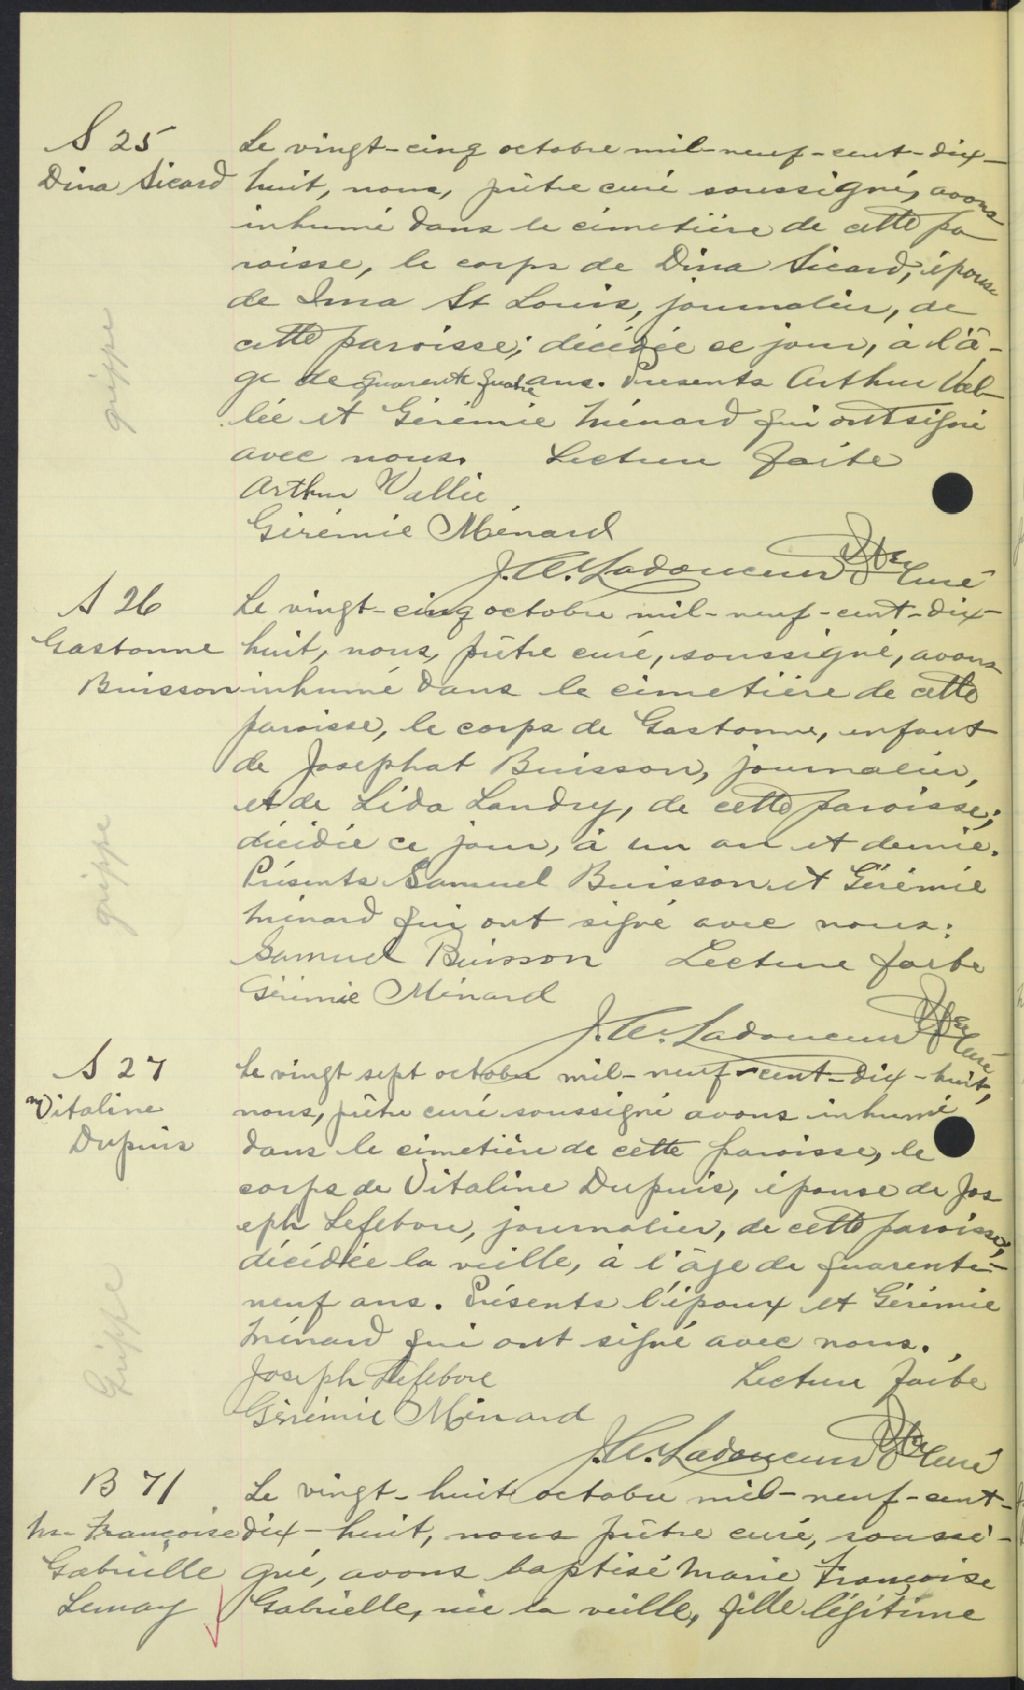 S 25
Dina Sicard
grippe
Le vingt-cinq octobre mil-neuf-cent-dix-
huit, nous, prêtre curé soussigné, avons
inhumé dans le cimetière de cette pa
roisse, le corps de Dina Sicard, épouse
de Ima St Louis, journalier, de
cette paroisse; décédée ce jour, à l'â-
ge de quarante quatre ans. Présents Arthur Val-
lée et Gérémie Ménard qui ont signé
avec nous. Lecture faite
Arthur Vallie
Gérémie Ménard
J. A. Ladouceur Ptre Curé
S 26
Gastonne
Buisson
grippe
Le vingt-cinq octobre mil-neuf-cent-dix-
huit, nous, prêtre curé, soussigné, avons
inhumé dans le cimetière de cette
paroisse, le corps de Gastonne, enfant
de Josephat Buisson, journalier,
et de Lida Landry, de cette paroisse;
décédée ce jour, à un an et demie.
Présents Samuel Buisson et Gérémie
Ménard qui ont signé avec nous:
Samuel Buisson Lecture faite
Gérémie Ménard
J. A. Ladouceur Ptre Curé
S 27
Vitaline
Dupuis
Grippe
Le vingt sept octobre mil-neuf-cent-dix-huit,
nous, prêtre curé soussigné avons inhumé
dans le cimetière de cette paroisse, le
corps de Vitaline Dupuis, épouse de Jos
eph Lefebvre, journalier, de cette paroisse;
décédée la veille, à l'âge de quarante-
neuf ans. Présents l'époux et Gérémie
Ménard qui ont signé avec nous.
Joseph Lefebvre Lecture faite
Gérémie Ménard
J. A. Ladouceur Ptre Curé
B 71
M. Françoise
Gabrielle
Lemay
Le vingt-huit octobre mil-neuf-cent-
dix-huit, nous prêtre curé, soussi-
gné, avons baptisé Marie Françoise
Gabrielle, née la veille, fille légitime